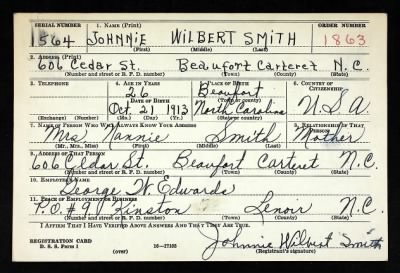 SERIAL NUMBER 1. NAME (Print) ORDER NUMBER
1564 JOHNNIE WILBERT SMITH 1863
(First) (Middle) (Last)
2. ADDRESS (Print)
606 Cedar St. Beaufort Carteret N.C.
(Number and street or R. F. D. number) (Town) (County) (State)
3. TELEPHONE 4. AGE IN YEARS 5. PLACE OF BIRTH 6. COUNTRY OF CITIZENSHIP
26 Beaufort
DATE OF BIRTH (Town or county)
Oct. 21 1913 North Carolina U.S.A.
(Exchange) (Number) (Mo.) (Day) (Yr.) (State or country)
7. NAME OF PERSON WHO WILL ALWAYS KNOW YOUR ADDRESS 8. RELATIONSHIP OF THAT PERSON
Mrs. Nannie Smith Mother
(Mr., Mrs., Miss) (First) (Middle) (Last)
9. ADDRESS OF THAT PERSON
606 Cedar St. Beaufort Carteret N.C.
(Number and street or R. F. D. number) (Town) (County) (State)
10. EMPLOYER'S NAME
George W. Edwards
11. PLACE OF EMPLOYMENT OR BUSINESS
P.O. #91 Kinston Lenoir N.C.
(Number and street or R. F. D. number) (Town) (County) (State)
I AFFIRM THAT I HAVE VERIFIED ABOVE ANSWERS AND THAT THEY ARE TRUE.
REGISTRATION CARD
D. S. S. Form 1 (over) 16—17105
Johnnie Wilbert Smith
(Registrant's signature)